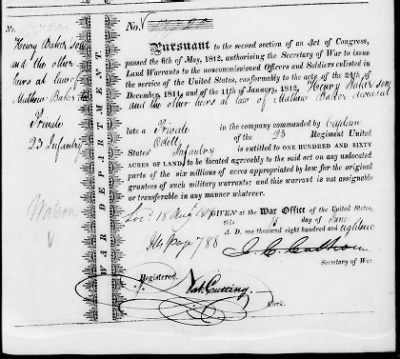 No.
Henry Baker son
and the other
heirs at law of
Mathew Baker
Private
23 Infantry
WAR DEPARTMENT.
Pursuant to the second section of an Act of Congress,
passed the 6th of May, 1812, authorising the Secretary of War to issue
Land Warrants to the noncommissioned Officers and Soldiers enlisted in
the service of the United States, conformably to the acts of the 24th
December, 1811, and of the 11th of January, 1812, Henry Baker son
and the other heirs at law of Mathew Baker deceased
late a Private in the company commanded by Captain
Odell of the 23 Regiment United
States' Infantry is entitled to ONE HUNDRED AND SIXTY
ACRES OF LAND, to be located agreeably to the said act on any unlocated
parts of the six millions of acres appropriated by law for the original
grantees of such military warrants; and this warrant is not assignable
or transferable in any manner whatever.
GIVEN at the War Office of the United States,
18 Aug
this day of June
A. D. one thousand eight hundred and eighteen
page 788
J. C. Calhoun
Secretary of War.
Registered.
Nat. Cutting,
Clerk.